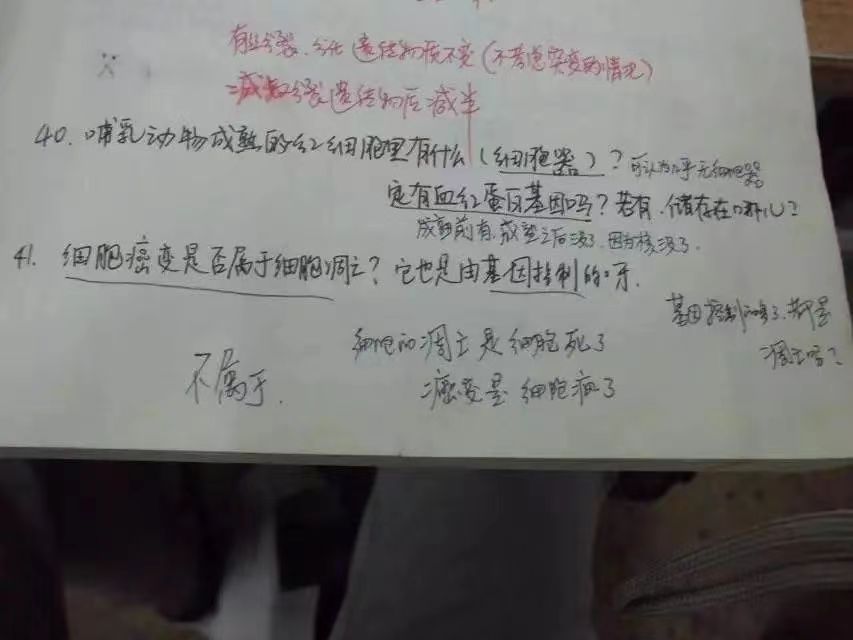 有丝分裂、分化 遗传物质不变(不考虑突变的情况)
减数分裂遗传物质减半
40. 哺乳动物成熟的红细胞里有什么(细胞器)? 可认为几乎无细胞器
它有血红蛋白基因吗?若有,储存在哪儿?
成熟前有,成熟之后没了,因为核没了.
41. 细胞癌变是否属于细胞凋亡?它也是由基因控制的呀.
基因控制的多了,都是
凋亡吗?
细胞的凋亡是细胞死了
不属于.
癌变是细胞疯了